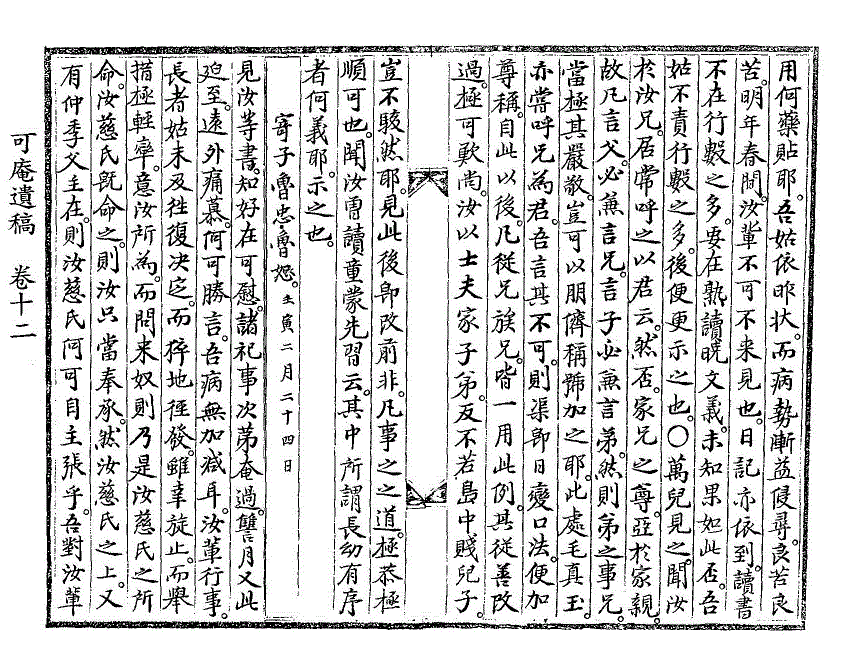 用何藥貼耶。吾姑依昨狀。而病勢漸益侵尋。良苦良
苦。明年春間。汝輩不可不來見也。日記亦依到。讀書
不在行數之多。要在熟讀曉文義。未知果如此否。吾
姑不責行數之多。後便更示之也。○萬兒見之。聞汝
於汝兄。居常呼之以君云。然否。家兄之尊。亞於家親。
故凡言父。必兼言兄。言子必兼言弟。然則弟之事兄。
當極其嚴敬。豈可以朋儕稱號加之耶。此處毛真玉。
亦嘗呼兄爲君。吾言其不可。則渠卽日變口法。便加
尊稱。自此以後。凡從兄族兄。皆一用此例。其從善改
過。極可歎尚。汝以士夫家子弟。反不若島中賤兒子。
豈不駭然耶。見此後卽改前非。凡事之之道。極恭極
順可也。聞汝曹讀童蒙先習云。其中所謂長幼有序
者何義耶。示之也。
寄子魯忠魯恕。壬寅二月二十四日
見汝等書。知好在可慰。諸祀事次第奄過。讐月又此
迫至。遠外痛慕。何可勝言。吾病無加减耳。汝輩行事。
長者姑未及往復決定。而猝地徑發。雖幸旋止。而擧
措極輕率。意汝所爲。而問來奴則乃是汝慈氏之所
命。汝慈氏旣命之。則汝只當奉承。然汝慈氏之上。又
有仲季父主在。則汝慈氏何可自主張乎。吾對汝輩
可庵遺稿 卷十二